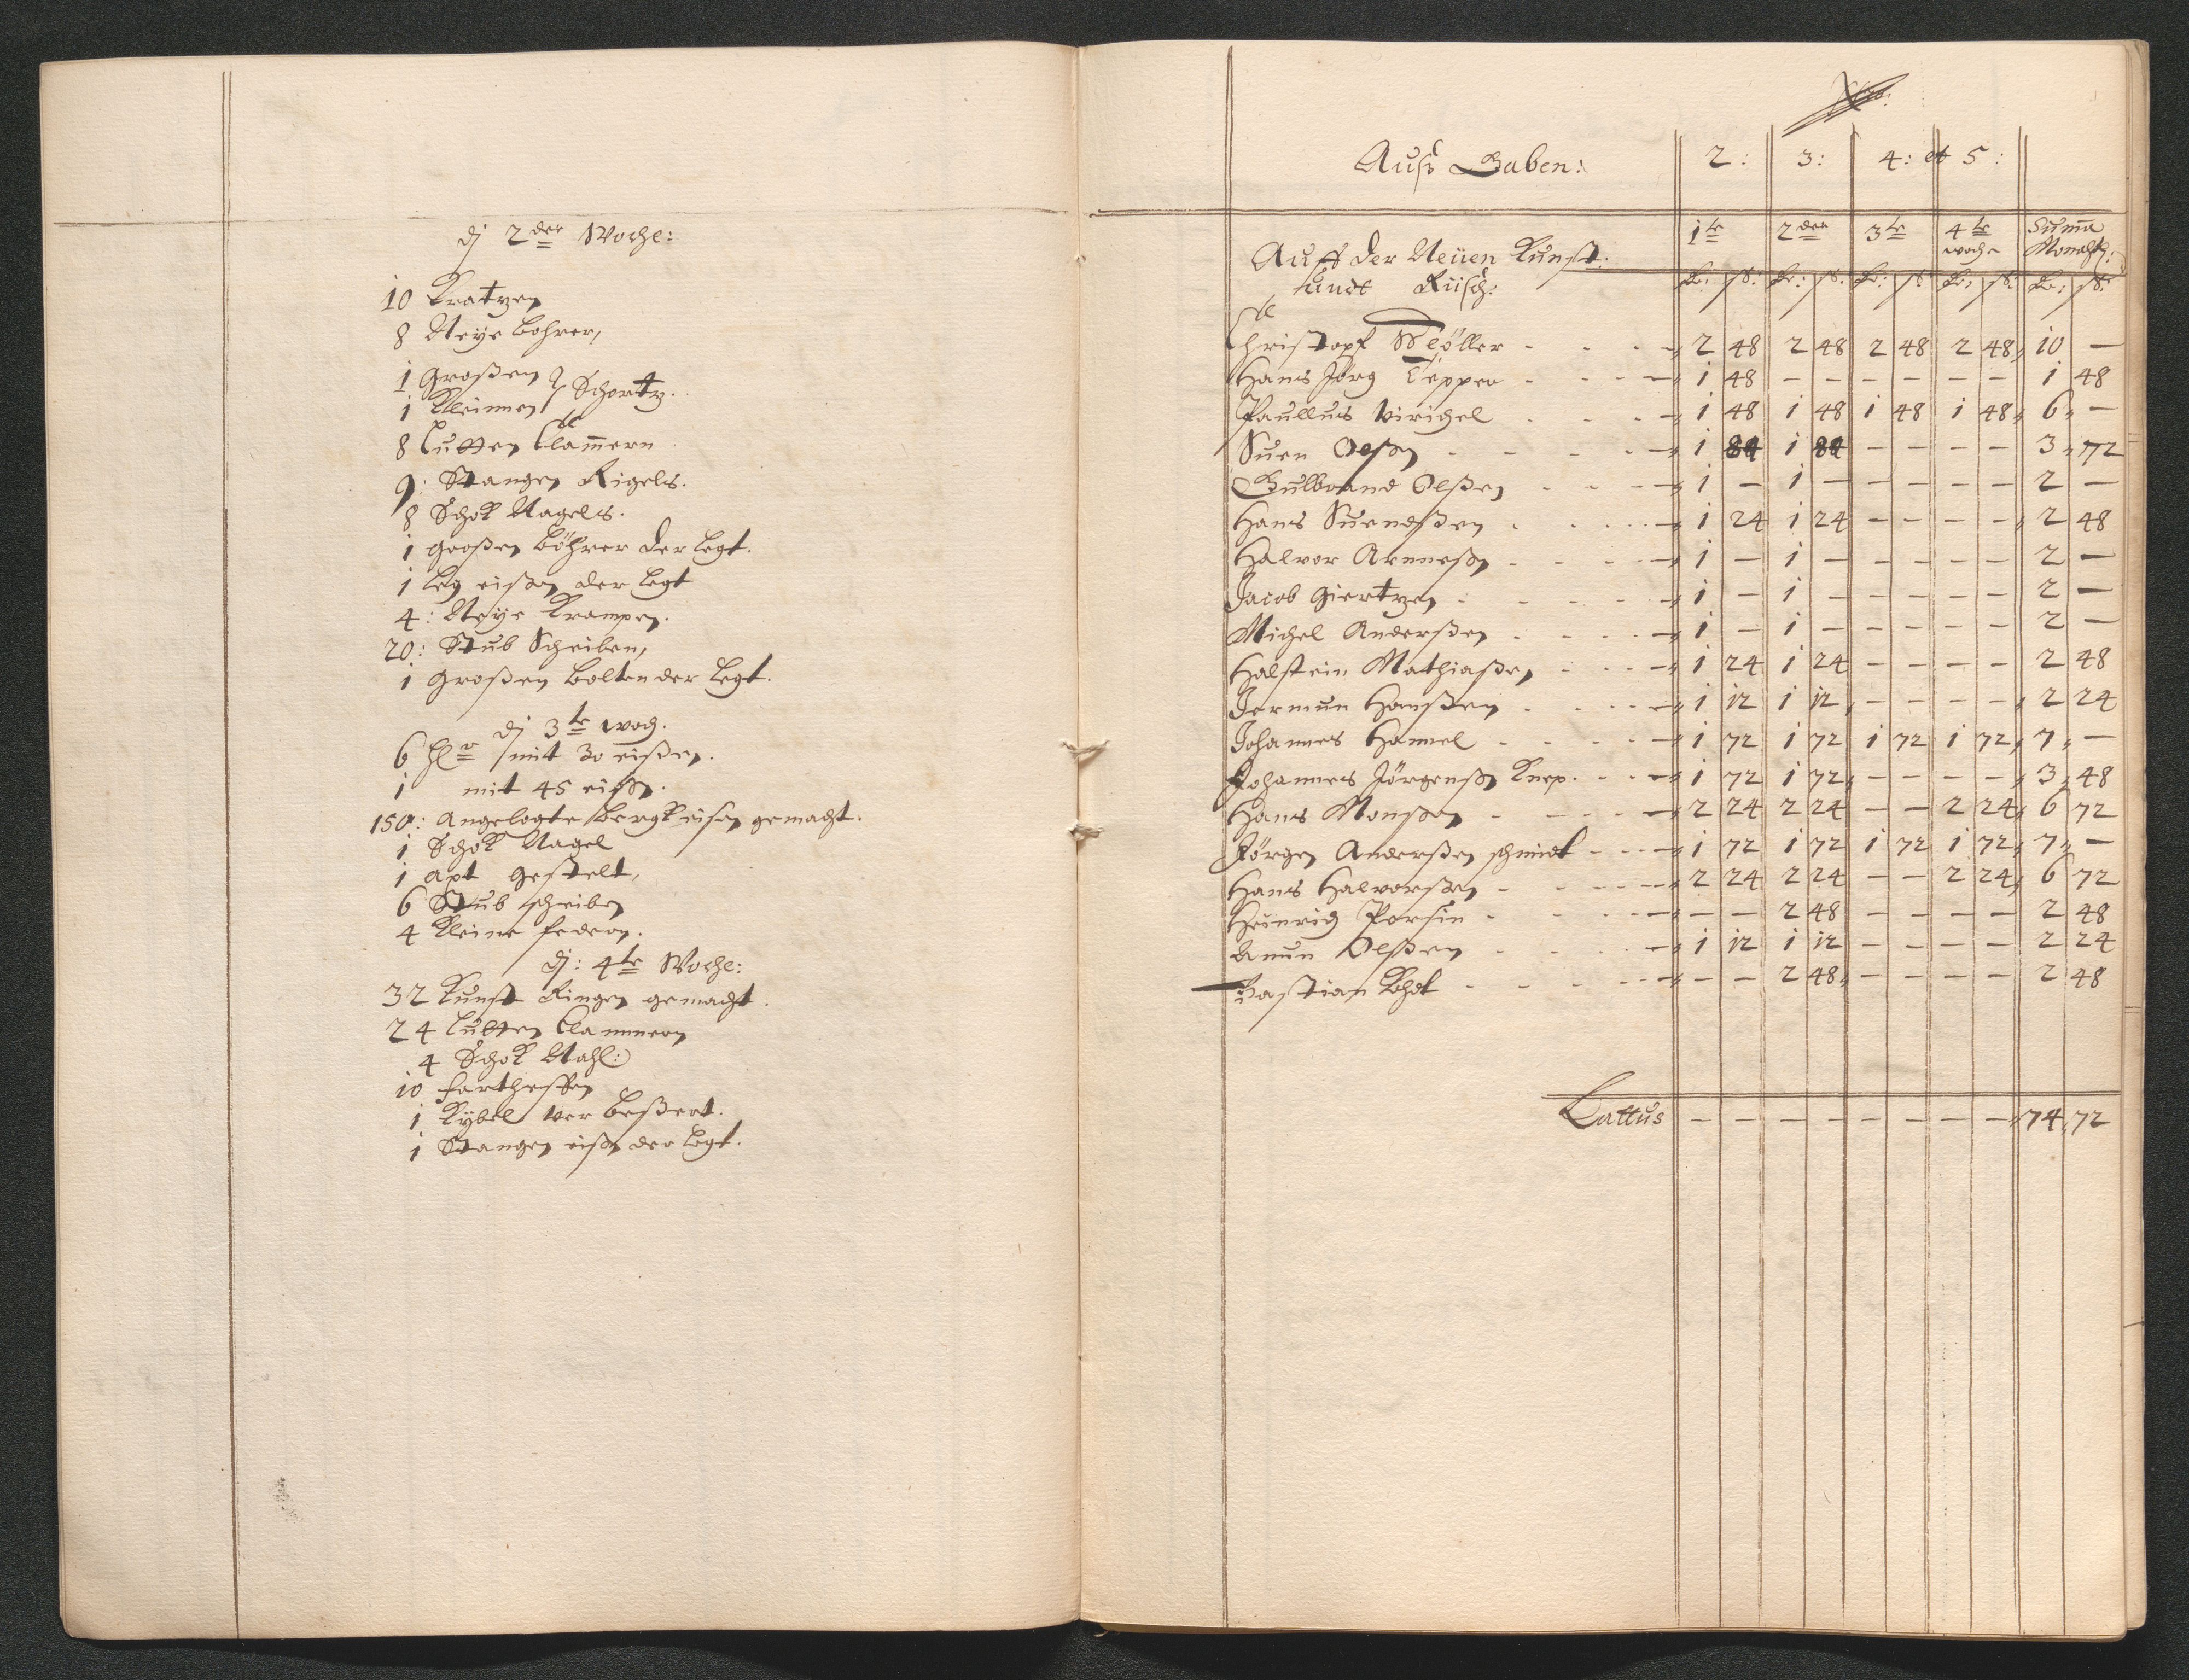 dj 2der Woche:
10 Kratzen
8 Neÿe bohrer,
1 großen
1 Kleinnen } Schertz.
8 Lutten Clam̃ern
9: Stangen Rigels.
8 Schok Nagels.
1 großen böhrer der legt.
1 leg eißen der legt
4: Neÿe Krampen.
20: Stub Scheiben,
1 großen bolten der legt.
dj 3te woch.
6 mit 30 eißen.
1 mit 45 eißen.
150: angelegte bergk eisen gemacht.
1 Schok Nagel
1 axt gestelt,
6 Stub scheiben
4 Kleine federn.
dj: 4te Woche:
32 Kunst Ringen gemacht.
24 Lutten Clammern
4 Schok Nahl:
10
1 Kÿbel ver beßert.
1 Stangen eißen der legt.
Auß Gaben: 2: 3: 4: et 5:
Auff der Neüen Kunst. 1te 2der 3te 4te woche Sum̃a Monaht:
undt Rüsch: Rr: ß: Rr: ß: Rr: ß Rr: ß: Rr: ß:
Christopf Möller - - - - 2 48 2 48 2 48 2 48 10 —
Hans Jörg Tepper - - - 1 48 - - - - - - 1 48
Paullus virichel - - - 1 48 1 48 1 48 1 48 6 —
Suen Olßen - - - - 1 84 1 84 - - - - 3 72
Gulbrand Olßen - - - 1 — 1 — - - - - 2 —
Hans Suendßen - - - 1 24 1 24 - - - - 2 48
Halvor Arneßen - - - 1 — 1 — - - - - 2 —
Jacob Giertzen - - - 1 — 1 — - - - - 2 —
Michel Anderßen - - - 1 — 1 — - - - - 2 —
Halstein Mathiaßen - - - 1 24 1 24 - - - - 2 48
Jermun Hanßen - - - 1 12 1 12 - - - - 2 24
Johannes Hamel - - - - 1 72 1 72 1 72 1 72 7 —
Johannes Jörgenßen Knep. - - 1 72 1 72 - - - - 3 48
Hans Monßen - - - 2 24 2 24 - - 2 24 6 72
Jörgen Anderßen schmidt - - - 1 72 1 72 1 72 1 72 7 —
Hans Halvorßen - - - 2 24 2 24 - - 2 24 6 72
Heinrich Porsin - - - - - 2 48 - - - - 2 48
Amun Olßen - - - 1 12 1 12 - - - - 2 24
Bastian Koht - - - - - 2 48 - - - - 2 48
Lattus - - - - - - - - 74 72